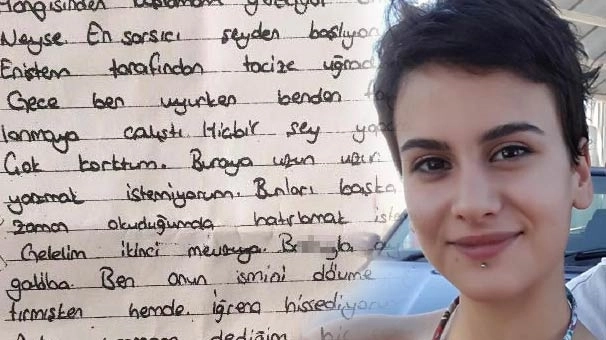 Hangisinden başlamam
Neyse. En sarsıcı şeyden başlıyor
Eniştem tarafından tacize uğra
Gece ben uyurken benden fa
lanmaya çalıştı. Hiçbir şey yap
Çok korktum. Buraya uzun uzun
yazmak istemiyorum. Bunları başka
zaman okuduğumda hatırlamak iste
Gelelim ikinci mevzuya. B
galiba. Ben onun ismini dövme
tirmişken hemde. İğrenç hissediyorum
dediğim bir